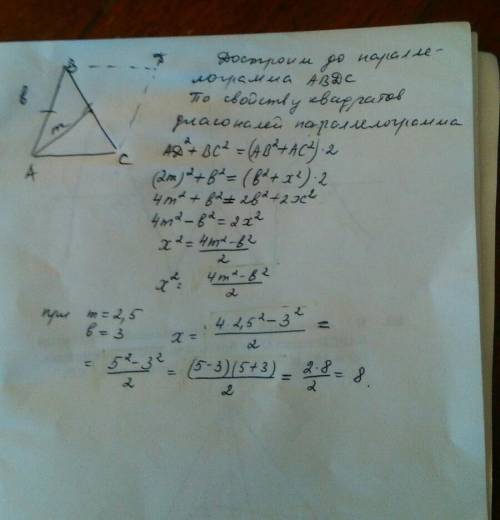 Достроим до паралле-
лограмма ABDC
По свойству квадратов
диагоналей параллелограмма
B
D
в
m
A
C
AD²+BC²=(AB²+AC²)·2
(2m)²+в²=(в²+x²)·2
4m²+в²=2в²+2x²
4m²-в²=2x²
x²=4m²-в²/2
x²=4m²-в²/2
при m=2,5
в=3
x=4·2,5²-3²/2=
=5²-3²/2=(5-3)(5+3)/2=2·8/2=8.